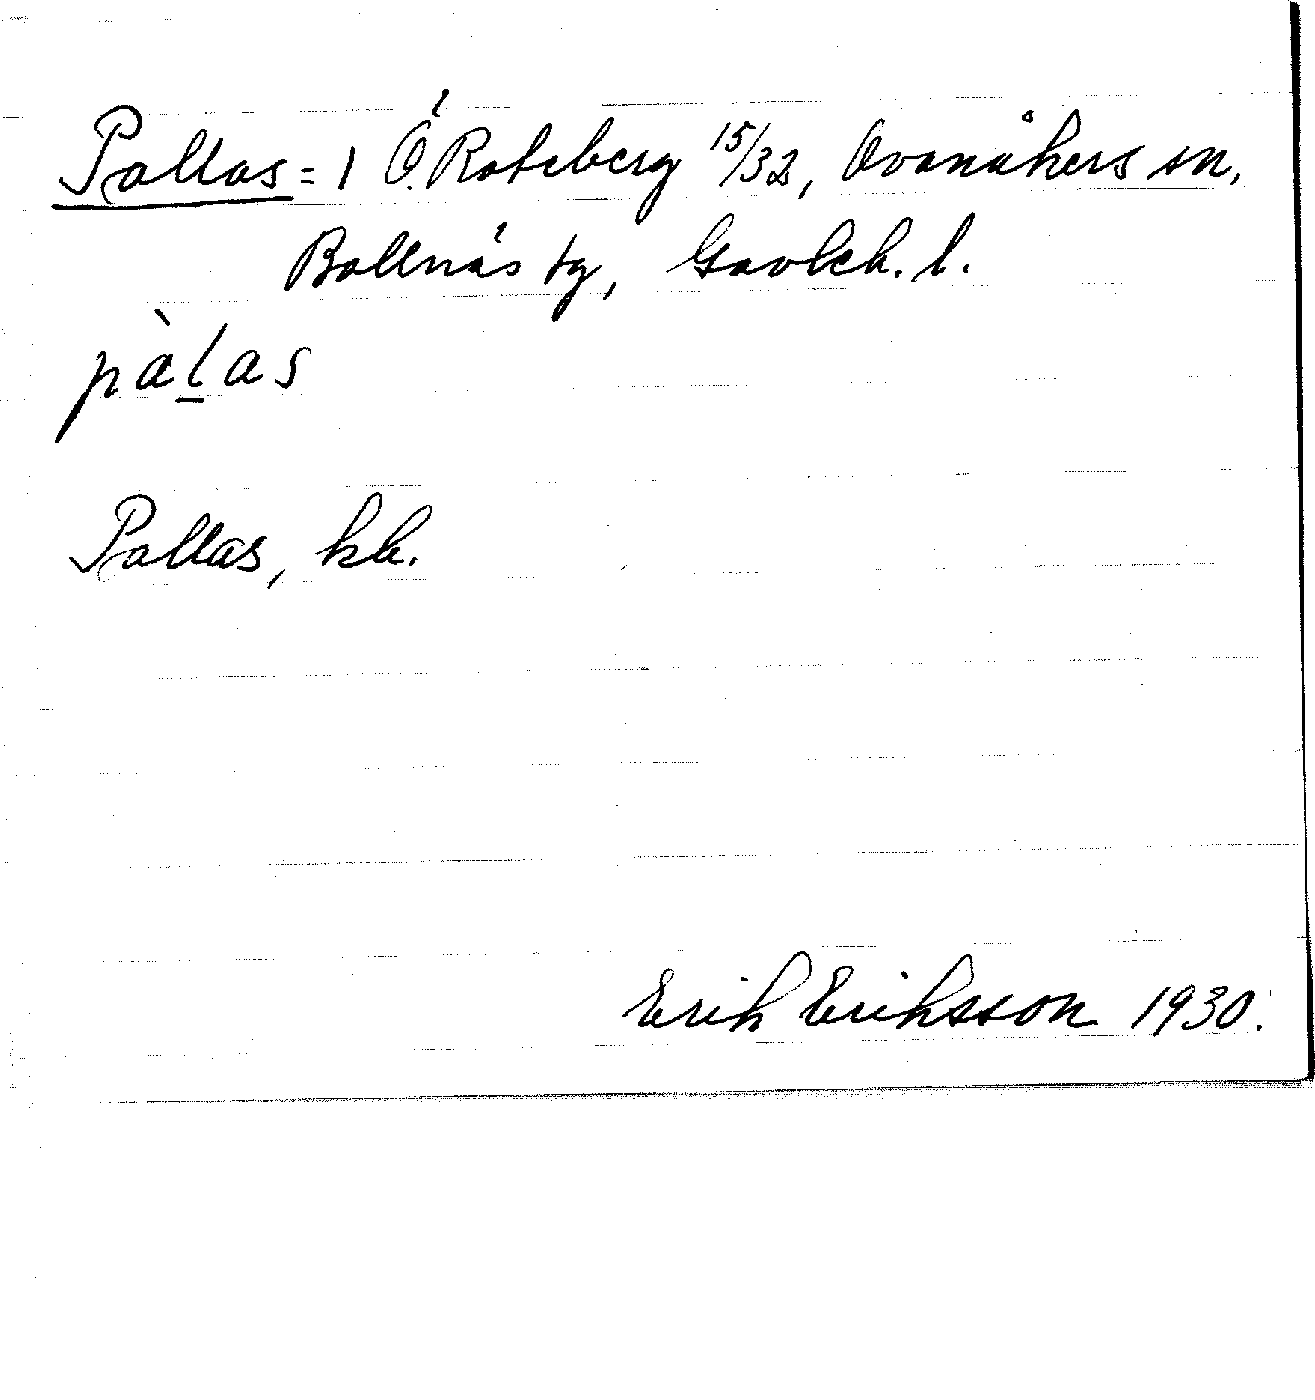 Pallas = 1 Ö. Roteberg 15/32, Ovanåkers sn,
Bollnäs tg, Gävleb. l.
pàl̠as
Pallas, kb.
Erik Eriksson 1930.